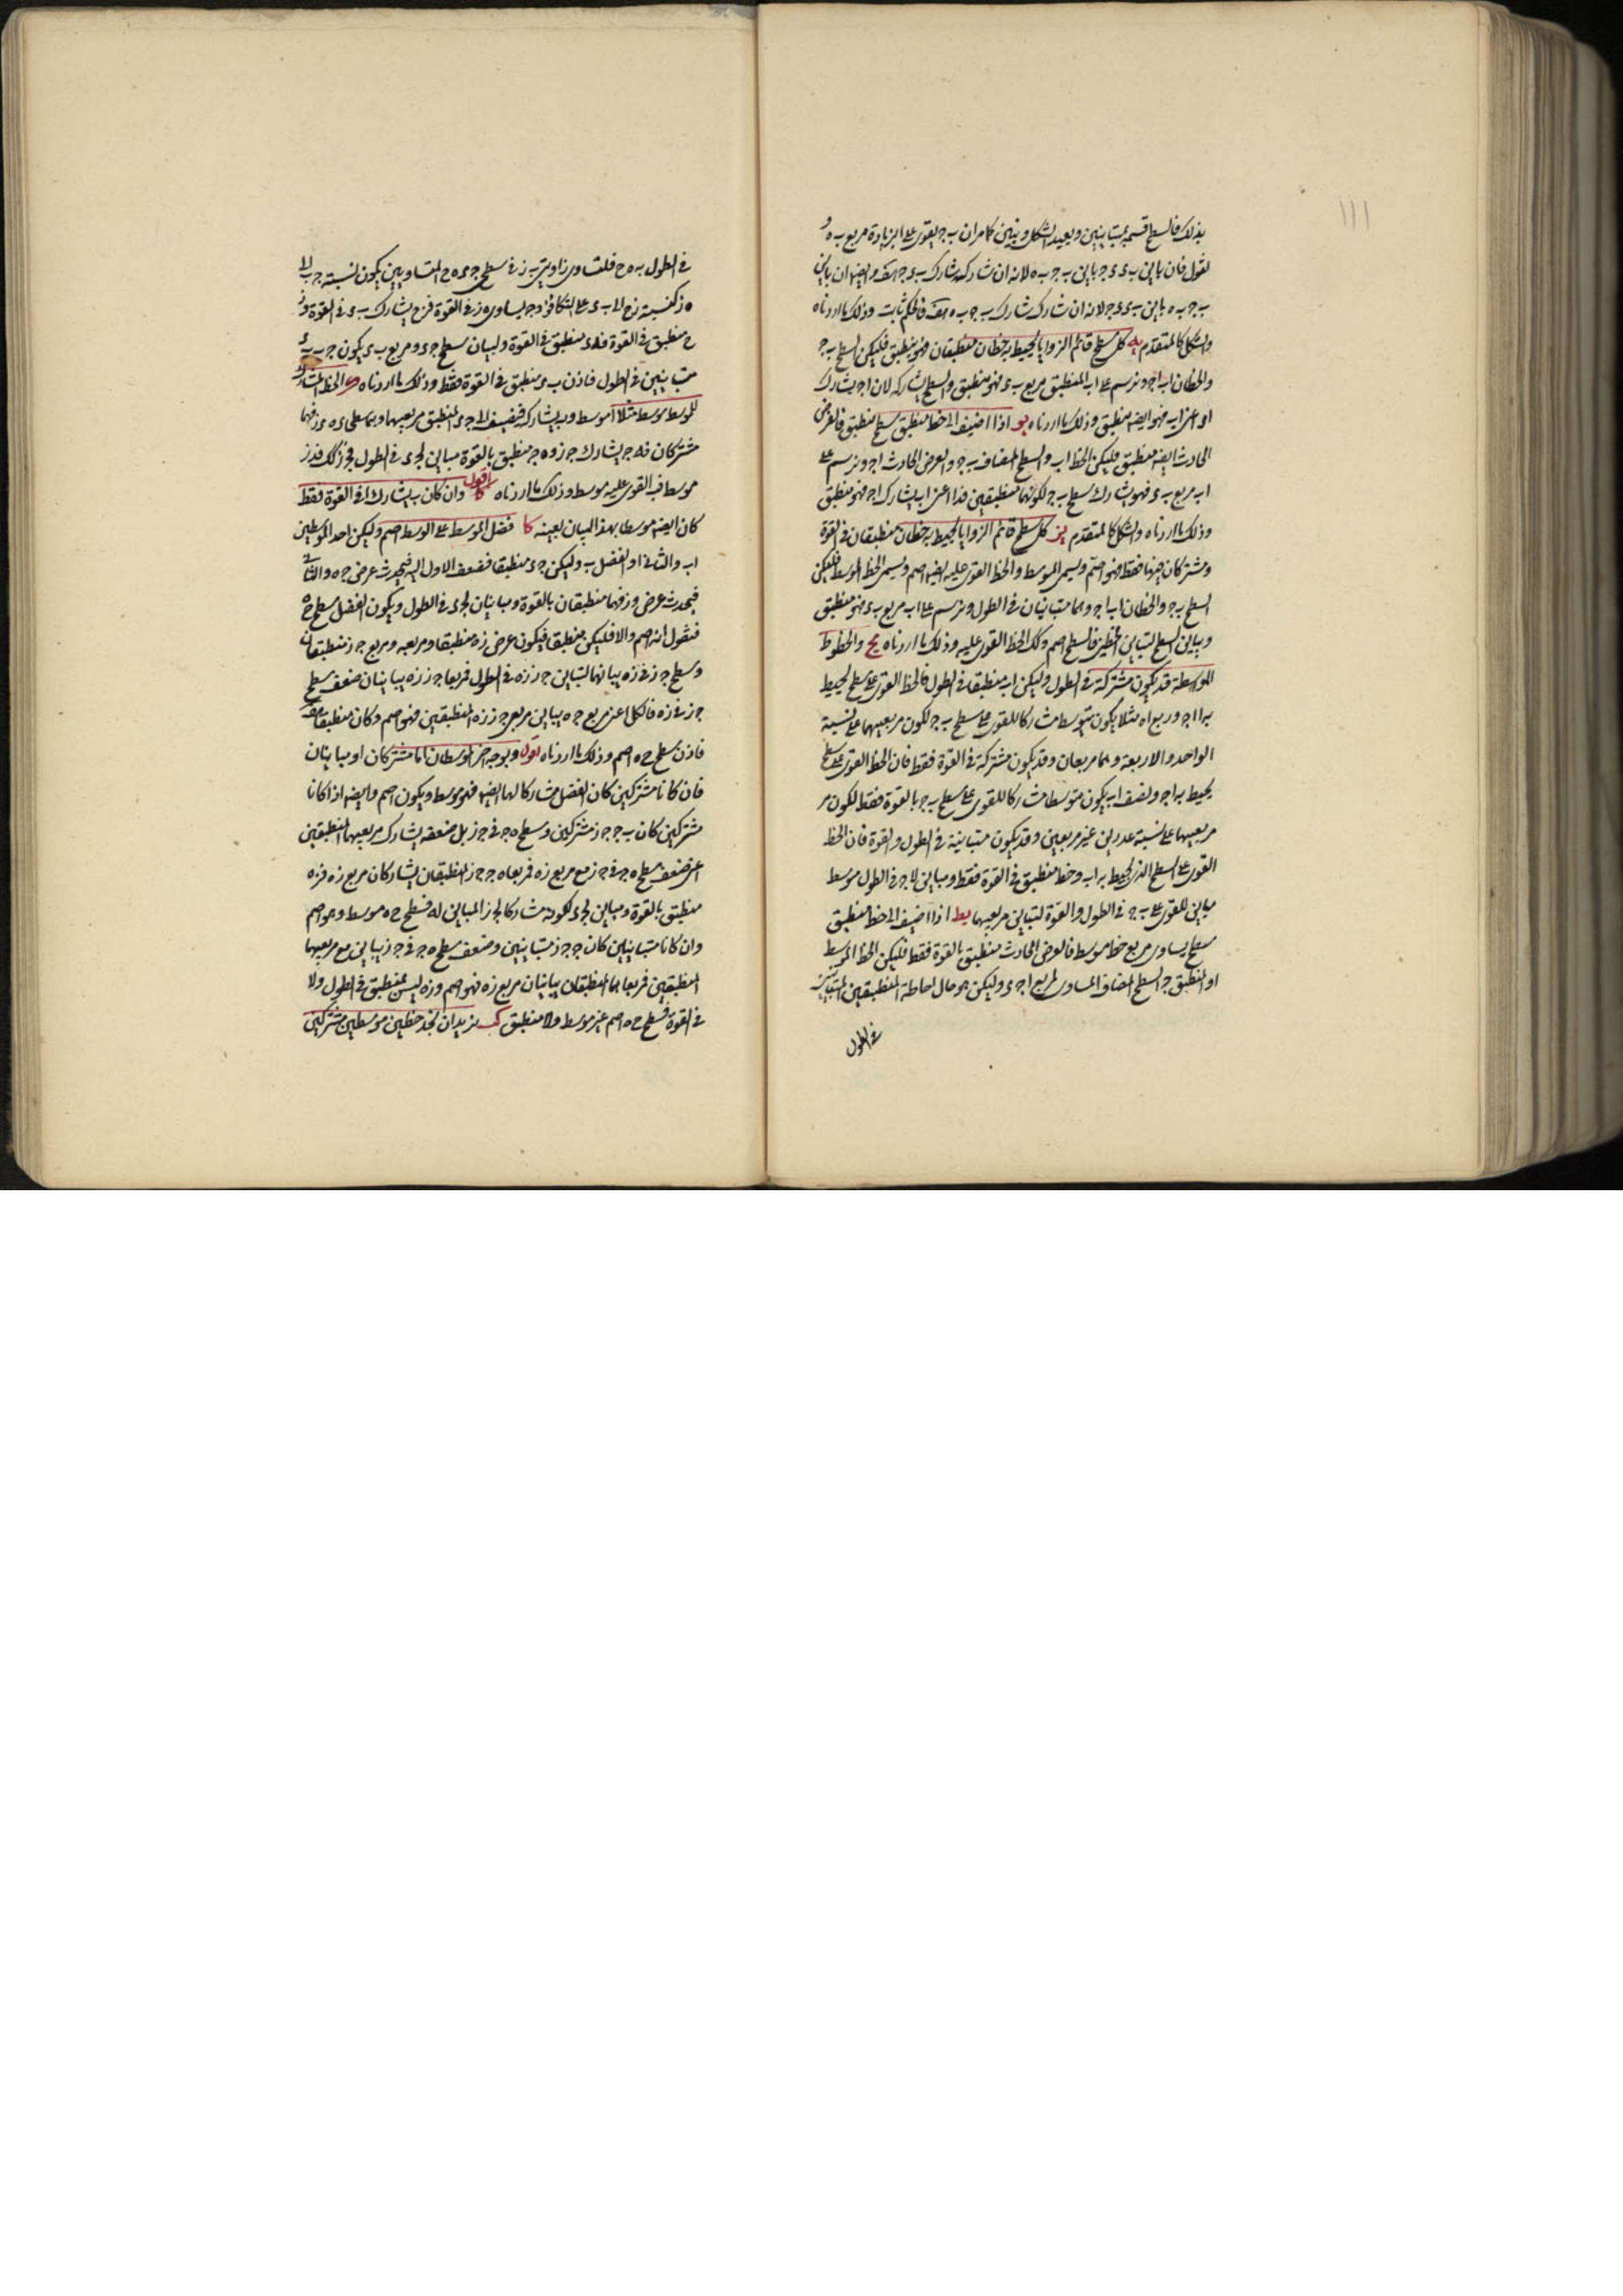 ١١١
بذلك فالسطح قسم بمتباينين ونعيد الشكل ونبين كما مر ان ب ج يقوى على ا بزيادة مربع ب ه و
نقول فان باين ب ى ى ج باين ب ج ب ه لانه ان شاركه شارك ب ى ى ج هف وايضا ان باين
ب ج ب ه باين ب ى ى ج لانه ان شارك شارك ب ج ب ه هف فالحكم ثابت وذلك ما اردناه
والشكل كالمتقدم يه كل سطح قائم الزوايا يحيط به خطان منطقان فهو منطق فليكن السطح ب ج
والخطان ا ب ا ج ونرسم على ا ب المنطق مربع ب ى فهو منطق والسطح يشاركه لان ا ج يشارك
ا ى اعنى ا ب فهو ايضا منطق وذلك ما اردناه يو اذا اضيف الى خط منطق سطح منطق فالعرض
الحادث ايضا منطق فليكن الخط ا ب والسطح المضاف ب ج والعرض الحادث ا ج ونرسم على
ا ب مربع ب ى فهو يشارك سطح ب ج لكونهما منطقين فـ ا ى اعنى ا ب يشارك ا ج فهو منطق
وذلك ما اردناه والشكل كالمتقدم يز كل سطح قائم الزوايا يحيط به خطان منطقان فى القوة
ومشتركان فيها فقط فهو اصم ويسمى الموسط والخط القوى عليه ايضا اصم ويسمى الخط الموسط فليكن
السطح ب ج والخطان ا ب ا ج وهما متباينان فى الطول ونرسم على ا ب مربع ب ى فهو منطق
ويباين السطح لتباين الخطين فالسطح اصم وكك الخط القوى عليه وذلك ما اردناه يح والخطوط
الموسطة قد يكون مشتركة فى الطول وليكن ا ب منطقا فى الطول فالخط القوى على سطح يحيط
به ا ا ج وربع ا ه مثلا يكون متوسطا مشاركا للقوى على سطح ب ج لكون مربعيهما على نسبة
الواحد والاربعة وهما مربعان وقد يكون مشتركة فى القوة فقط فان الخط القوى على سطح
يحيط به ا ج ونصف ا ب يكون متوسطا مشاركا للقوى على سطح ب ج بالقوة فقط لكون مر
مربعيهما على نسبة عددين غير مربعين وقد يكون متباينة فى الطول والقوة فان الخط
القوى على السطح الذى يحيط به ا ب وخط منطق فى القوة فقط ومباين لا ج فى الطول موسط
مباين للقوى على ب ج فى الطول والقوة لتباين مربعيهما يط اذا اضيف الى خط منطق
سطح يساوى مربع خط موسط فالعرض الحادث منطق بالقوة فقط فليكن الخط الموسط
ا والمنطق ج والسطح المضاف المساوى لمربع ا ج ى وليكن هو حال احاطة المنطقين المتباينين
فى الطول
فى الطول به ه ح فلتساوى زاويتى ب ز فى سطحى ج ى ه ح المتساويين يكون نسبة ج ب الى
ه ز كنسبة ز ح الى ب ى على التكافؤ و ج ب يساوى ه ز فى القوة فـ ز ح يشارك ب ى فى القوة و ز
ح منطق فى القوة فـ ب ى منطق فى القوة ولتباين سطح ج ى ومربع ب ى يكون ج ب ب ى
متباينين فى الطول فاذن ب ى منطق فى القوة فقط وذلك ما اردناه ك الخط المشارك
للموسط موسط مثلا ا موسط و ب يشاركه فنضيف الى ج ى المنطق مربعيهما وهما سطحا ى ه ى ز فهما
مشتركان فـ ه ج يشارك ج ز و ه ج منطق بالقوة مباين لـ ج ى فى الطول فـ ج ز كك فـ ى ز
موسط فـ ب القوى عليه موسط وذلك ما اردناه اقول وان كان ب يشارك ا فى القوة فقط
كان ايضا موسطا بهذا البيان بعينه كا فضل الموسط على الموسط اصم وليكن احد الموسطين
ا ب والثانى ا والفضل ب وليكن ج ى منطقا فنضف الاول اليه فيحدث عرض ج ه والثانى
فيحدث عرض و ز فهما منطقان بالقوة ومباينان لـ ج ى فى الطول ويكون الفضل سطح ح ه
فنقول انه اصم والا فليكن منطقا فيكون عرض ز ه منطقا ومربعه ومربع ج ز منطقان
وسطح ج ز فى ز ه يباينهما لتباين ج ز ز ه فى الطول فمربعا ج ز ز ه يباينان ضعف سطح
ج ز فى ز ه فالكل اعنى مربع ج ه يباين مربعى ج ز ز ه المنطقين فهو اصم وكان منطقا هف
فاذن سطح ح ه اصم وذلك ما اردناه اقول وبوجه اخر الموسطان اما مشتركان او متباينان
فان كانا مشتركين كان الفضل مشاركا لهما ايضا فهو موسط ويكون اصم وايضا اذا كانا
مشتركين كان ه ج ج ز مشتركين وسطح ه ج فى ج ز بل ضعفه يشارك مربعيهما المنطقين
اعنى ضعف سطح ه ج فى ج ز مع مربع ز ه فمربعا ه ج ج ز المنطقان يشاركان مربع ز ه فـ ز ه
منطق بالقوة ومباين لـ ج ى لكونه مشاركا لـ ج ز المباين له فسطح ح ه موسط وهو اصم
وان كانا متباينين كان ه ج ج ز متباينين وضعف سطح ه ج فى ج ز يباين مع مربعيهما
المنطقين فمربعاهما المنطقان يباينان مربع ز ه فهو اصم و ز ه ليس بمنطق فى الطول ولا
فى القوة فسطح ح ه اصم غير موسط ولا منطق كب نريد ان نجد خطين موسطين مشتركين